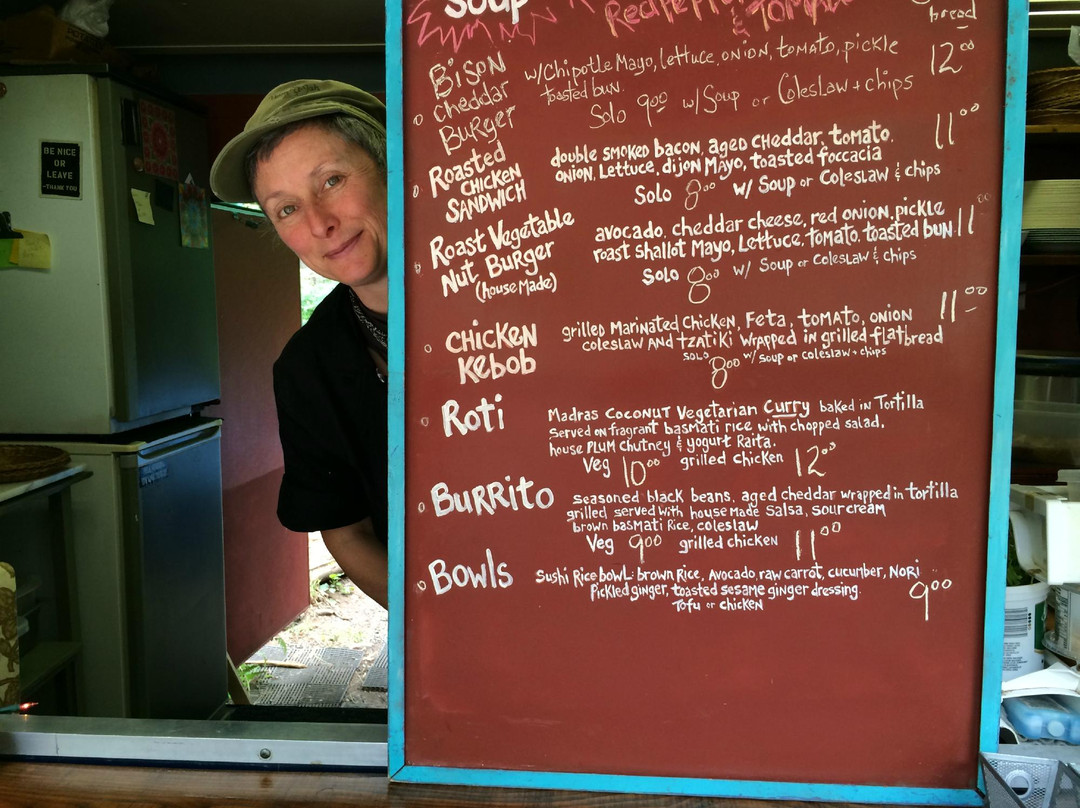 Soup
& Tomato
bread
Bison
Cheddar
Burger
w/Chipotle Mayo, lettuce, onion, tomato, pickle
toasted bun.
Solo 9.00 w/Soup or Coleslaw + chips
12.00
Roasted
Chicken
Sandwich
double smoked bacon, aged cheddar, tomato,
onion, Lettuce, dijon Mayo, toasted foccacia
Solo 8.00 w/ Soup or Coleslaw & chips
11.00
Roast Vegetable
Nut Burger
(house Made)
avocado, cheddar cheese, red onion, pickle
roast shallot Mayo, Lettuce, tomato, toasted bun
Solo 8.00 w/ Soup or Coleslaw & chips
11.00
Chicken
Kebob
grilled Marinated Chicken, Feta, tomato, onion
coleslaw and tzatiki wrapped in grilled flatbread
solo 8.00 w/ soup or coleslaw + chips
11.00
Roti
Madras Coconut Vegetarian Curry baked in Tortilla
served on fragrant basmati rice with chopped salad,
house Plum Chutney & yogurt Raita.
Veg 10.00 grilled chicken 12.00
Burrito
seasoned black beans, aged cheddar wrapped in tortilla
grilled, served with house made salsa, sour cream
brown basmati Rice, coleslaw
Veg 9.00 grilled chicken 11.00
Bowls
Sushi Rice bowl: brown Rice, Avocado, raw carrot, cucumber, Nori
Pickled ginger, toasted sesame ginger dressing.
Tofu or chicken
9.00
BE NICE
OR
LEAVE
-THANK YOU